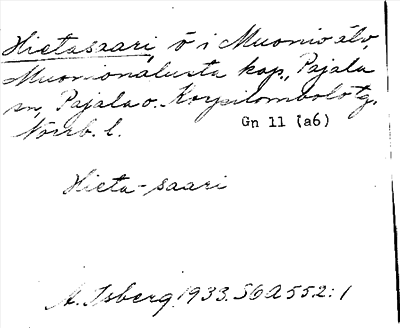 Hietasaari, ö i Muonio älv,
Muonionalusta kap., Pajala
sn, Pajala o. Korpilombolo tg.
Norrb. l.
Gn 11 (a6)
Hieta-saari
A. Isberg 1933. S6A552:1